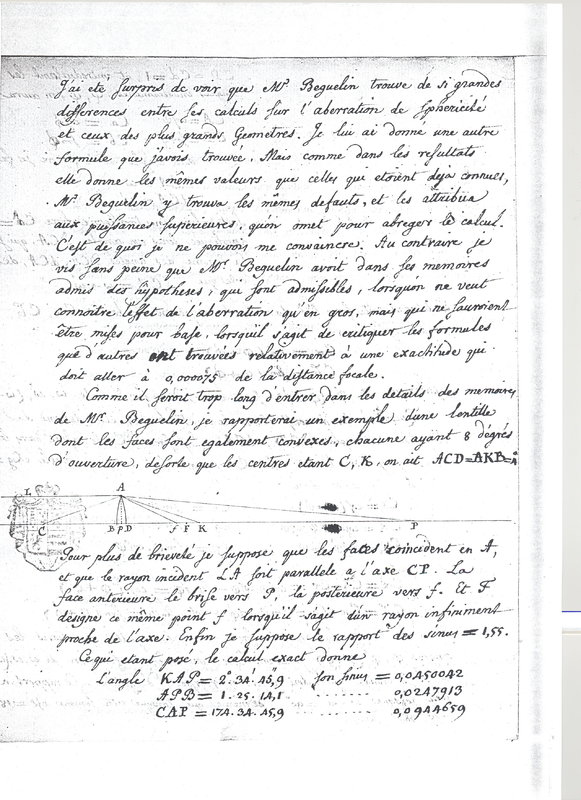 J'ai eté surpris de voir que Mr. Beguelin trouve de si grandes
differences entre ses calculs sur l'aberration de sphericité
et ceux des plus grands Geometres. Je lui ai donné une autre
formule que j'avois trouvée. Mais comme dans les resultats
elle donne les mêmes valeurs que celles qui etoient deja connues,
Mr. Beguelin y trouva les mêmes defauts, et les attribua
aux puissances superieures, qu'on omet pour abreger le calcul.
C'est de quoi je ne pouvois me convaincre. Au contraire je
vis sans peine que Mr. Beguelin avoit dans ses memoires
admis des hypotheses, qui sont admissibles, lorsqu'on ne veut
connoitre l'effet de l'aberration qu'en gros, mais qui ne sauroient
être mises pour base, lorsqu'il s'agit de critiquer les formules
que d'autres ont trouvées relativement à une exactitude qui
doit aller à 0,000075 de la distance focale.
Comme il seroit trop long d'entrer dans les details des memoires
de Mr. Beguelin, je rapporterai un exemple d'une lentille
dont les faces sont egalement convexes, chacune ayant 8 degrés
d'ouverture, desorte que les centres etant C, K, on ait ACD=AKB=
L A
C B P D f F K P
Pour plus de brieveté je suppose que les faces coincident en A,
et que le rayon incident LA soit parallele a l'axe CP. La
face anterieure le brise vers P, la posterieure vers f. Et F
designe ce même point f lorsqu'il s'agit d'un rayon infiniment
proche de l'axe. Enfin je suppose le rapport des sinus = 1,55.
Ce qui etant posé, le calcul exact donne
L'angle KAP = 2°. 34. 45,9 son sinus = 0,0450042
APB = 1. 25. 14,1 ........ 0,0247913
CAP = 174. 34. 45,9 ........ 0,0944659